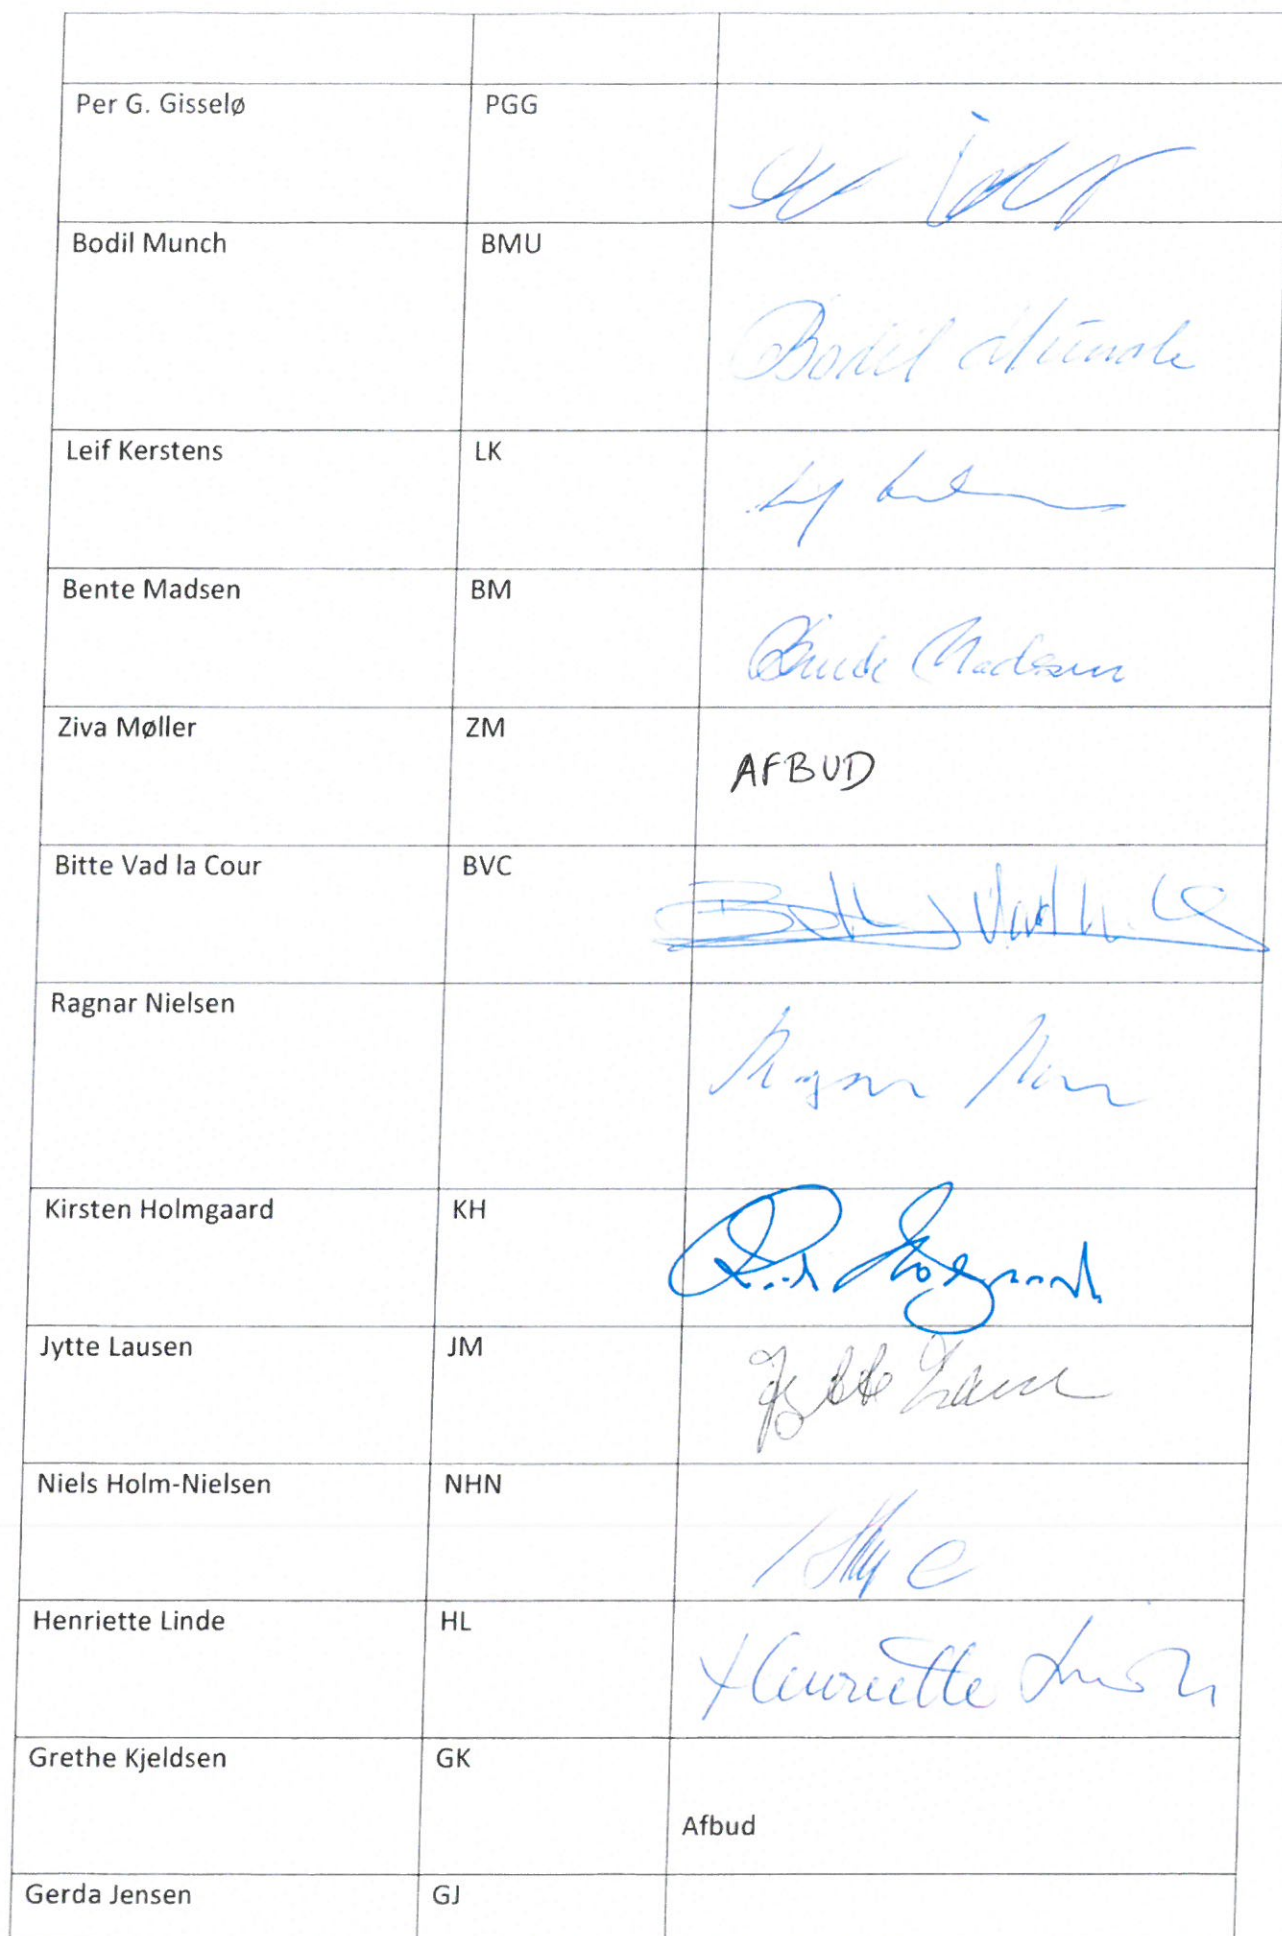 Per G. Gisselø PGG
Bodil Munch BMU
Bodil Munch
Leif Kerstens LK
Bente Madsen BM
Bente Madsen
Ziva Møller ZM
AFBUD
Bitte Vad la Cour BVC
Ragnar Nielsen
Kirsten Holmgaard KH
Jytte Lausen JM
Jytte Lausen
Niels Holm-Nielsen NHN
Henriette Linde HL
Henriette Linde
Grethe Kjeldsen GK
Afbud
Gerda Jensen GJ